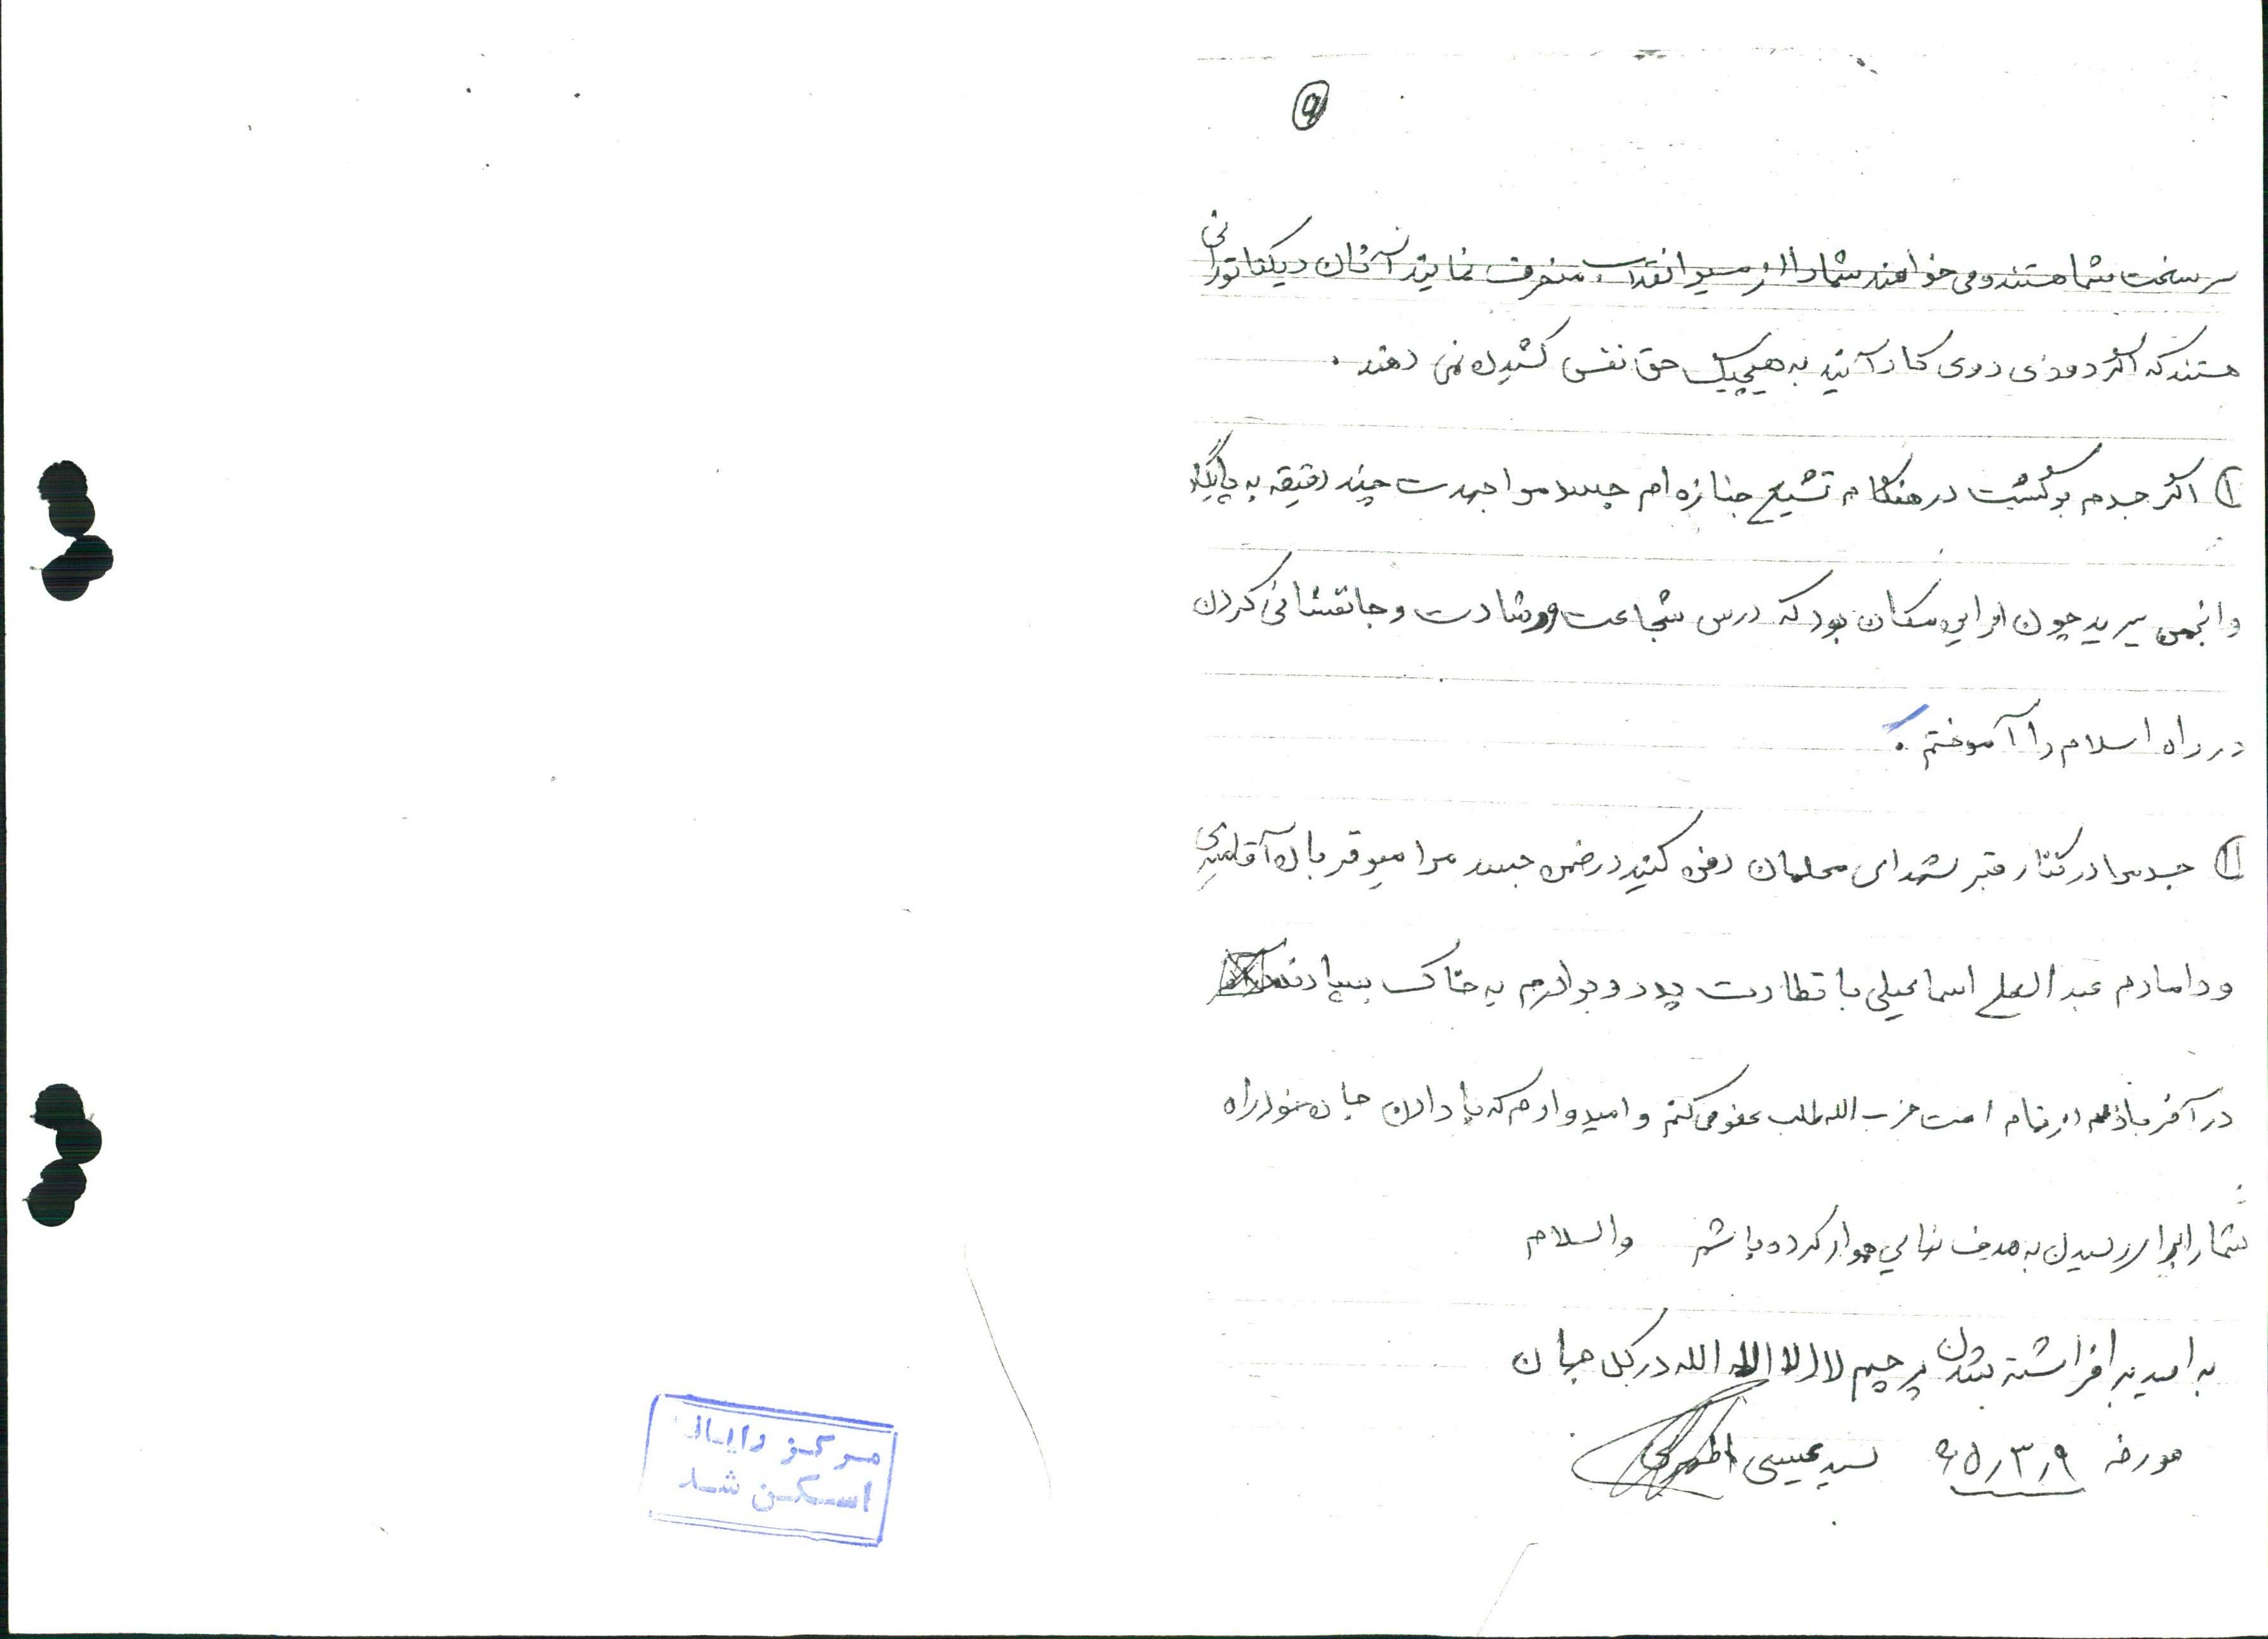 ۹
سرسخت شما هستند و می خواهند شما را از مسیر انقلاب منحرف نمایند آنان دیکتاتورانی
هستند که اگر روزی روی کار آیند به هیچیک حق نفس کشیدن نمی دهند .
۱۰ اگر جسدم برگشت در هنگام تشیع جنازه ام جسد مرا جهت چند دقیقه به پایگاه
و انجمن ببرید چون از این مکان بود که درس شجاعت و رشادت و جانفشانی کردن
در راه اسلام را آموختم .
۱۱ جسد مرا در کنار قبر شهدای محلمان دفن کنید در ضمن جسد مرا میر قربان آقا
و دامادم عبدالعلی اسماعیلی با نظارت پدر و برادرم به خاک بسپارند
در آخر از تمام امت حزب الله طلب عفو می کنم و امیدوارم که با دادن جان خود راه
شما را برای رسیدن به هدف نهایی هموار کرده باشم والسلام
به امید برافراشته شدن پرچم لا اله الا الله در کل جهان
مورخه ۶۵/۳/۹ سید عیسی
مرکز رایانه
اسکن شد